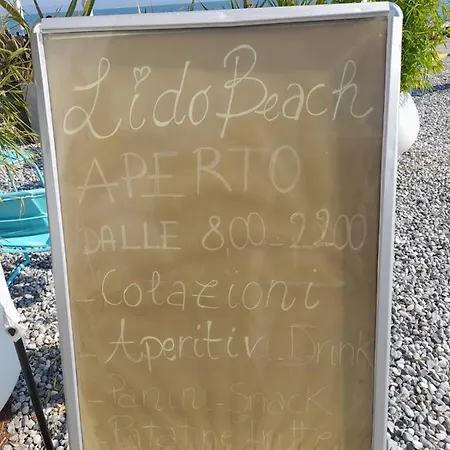 Lido Beach
APERTO
DALLE 8,00-22,00
- Colazioni
- Aperitivi - Drink
- Panini - Snack
- Patatine fritte